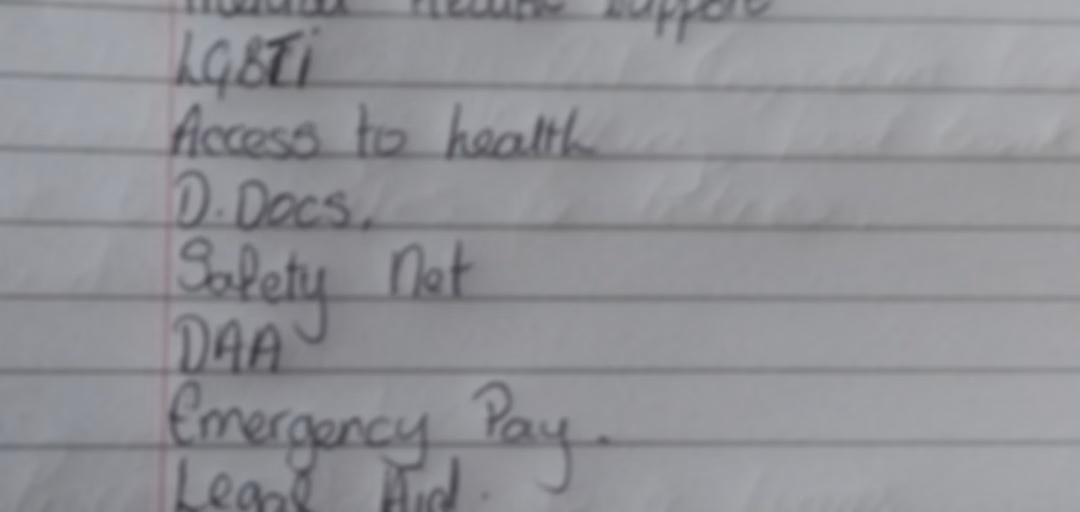 Health Support
LGBTi
Access to health
D.Docs.
Safety Net
DAA
Emergency Pay.
Legal Aid.